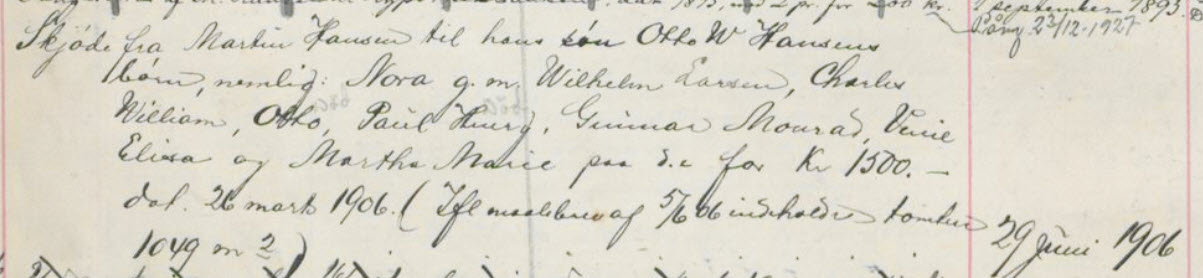 1893, 200 kr. september 1893.
23/12-1927
Skjøde fra Martin Hansen til hans søn Otto W Hansens
børn, nemlig: Nora g. m. Wilhelm Larsen, Charles
William, Otto, Paul Henry, Gunnar Monrad,
Elisa og Martha Marie paa d.e for Kr 1500.-
dat. 26 marts 1906. (Ifl maalebrev af 5/6 06 indeholder tomten
1049 m 2) 29 Juni 1906